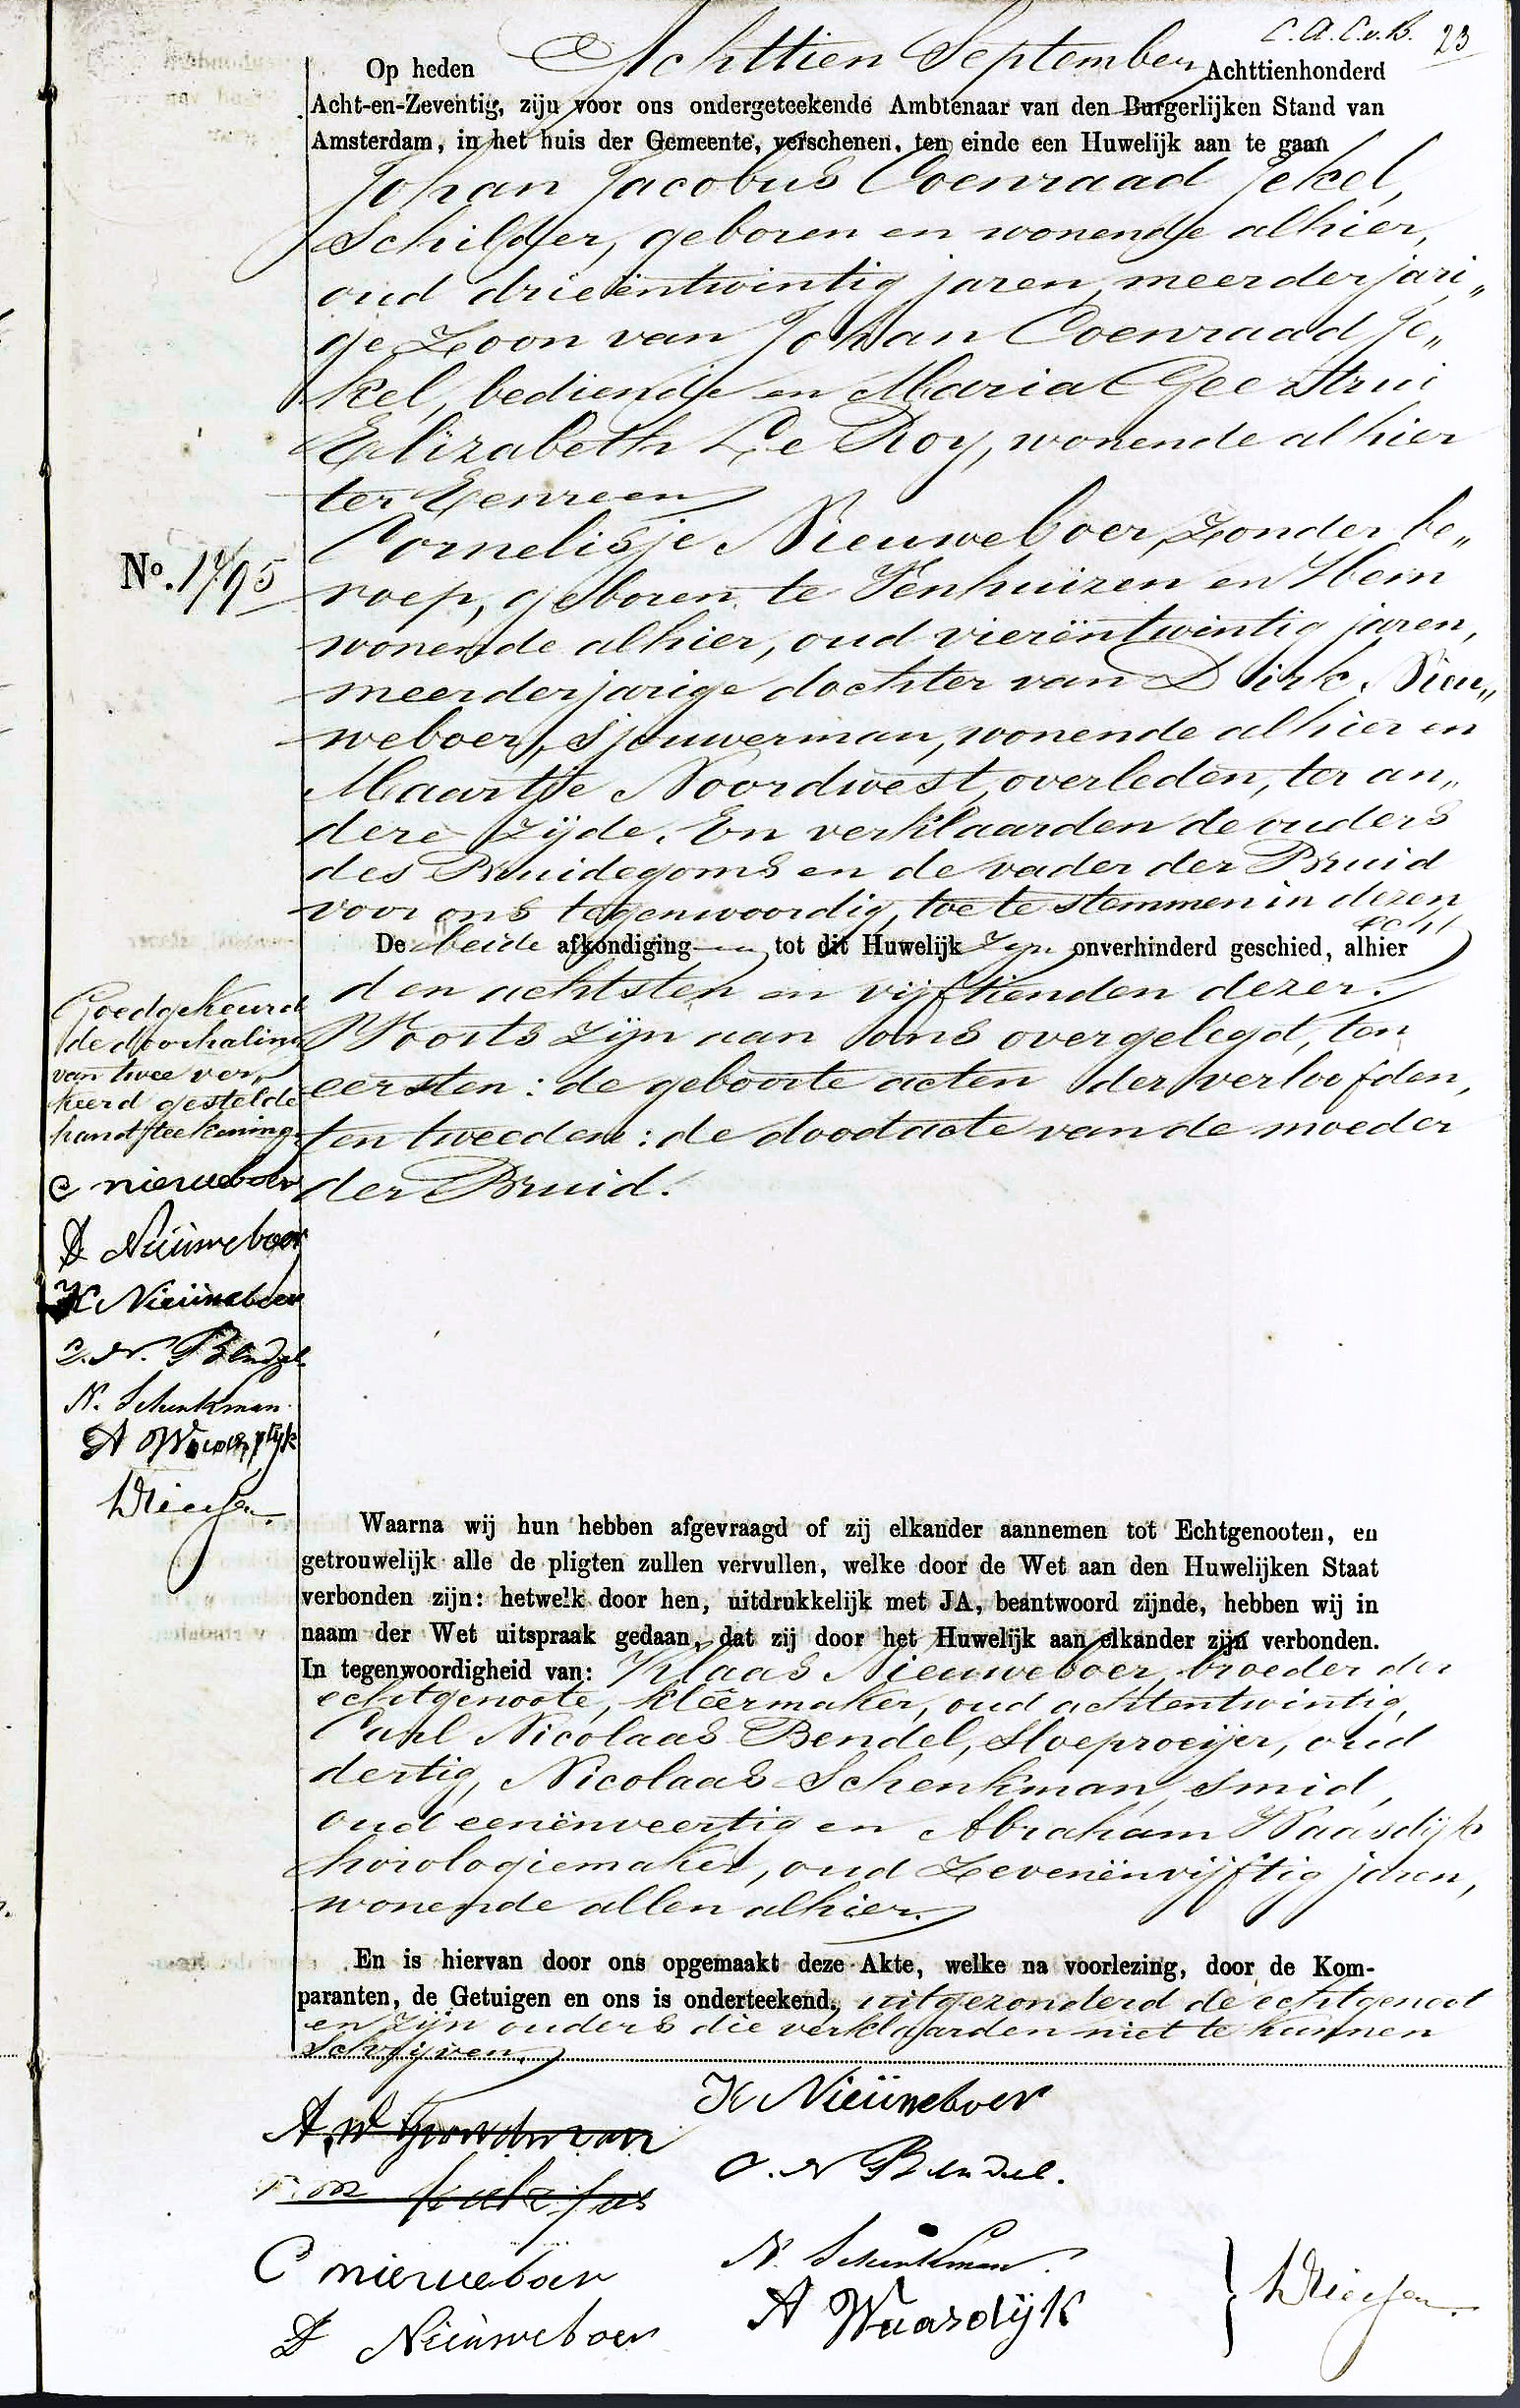 C.A.C.v.B. 23
Op heden Achttien September Achttienhonderd
Acht-en-Zeventig, zijn voor ons ondergeteekende Ambtenaar van den Burgerlijken Stand van
Amsterdam, in het huis der Gemeente, verschenen, ten einde een Huwelijk aan te gaan
Johan Jacobus Coenraad Jekel,
Schilder, geboren en wonende alhier,
oud drieëntwintig jaren, meerderjari„
ge Zoon van Johan Coenraad Je„
kel, bediende en Maria Geertrui
Elizabeth Le Roy, wonende alhier
ter Eenre en
Cornelisje Nieuweboer, Zonder be„
No. 1495
roep, geboren te Venhuizen en Hem
wonende alhier, oud vierëntwintig jaren,
meerderjarige dochter van Dirk Nieu„
weboer, Sjouwerman, wonende alhier en
Maartje Noordwest, overleden, ter an„
dere Zijde. En verklaarden de ouders
des Bruidegoms en de vader der Bruid
voor ons tegenwoordig, toe te stemmen in dezen
echt
De beide afkondigingen tot dit Huwelijk zijn onverhinderd geschied, alhier
den achtsten en vijftienden dezer.
Voorts zijn aan ons overgelegd, ten
eersten: de geboorte acten der verloofden,
ten tweeden: de doodacte van de moeder
der Bruid.
Goedgekeurd
de doorhaling
van twee ver„
keerd gestelde
handteekening.
C nieuweboer
D Nieuweboer
K Nieuweboer
C. N. Bendel
N. Schenkman
A Waasdijk
Waarna wij hun hebben afgevraagd of zij elkander aannemen tot Echtgenooten, en
getrouwelijk alle de pligten zullen vervullen, welke door de Wet aan den Huwelijken Staat
verbonden zijn: hetwelk door hen, uitdrukkelijk met JA, beantwoord zijnde, hebben wij in
naam der Wet uitspraak gedaan, dat zij door het Huwelijk aan elkander zijn verbonden.
In tegenwoordigheid van: Klaas Nieuweboer, broeder der
echtgenoote, kleermaker, oud achtentwintig,
Carl Nicolaas Bendel, Sloeproeijer, oud
dertig, Nicolaas Schenkman, smid,
oud eenënveertig en Abraham Waasdijk
horologiemaker, oud Zevenënvijftig jaren,
wonende allen alhier.
En is hiervan door ons opgemaakt deze Akte, welke na voorlezing, door de Kom-
paranten, de Getuigen en ons is onderteekend, uitgezonderd de echtgenoot
en zijn ouders die verklaarden niet te kunnen
Schrijven.
K Nieuweboer
C. N Bendel.
C nieuweboer
N. Schenkman.
D Nieuweboer
A Waasdijk